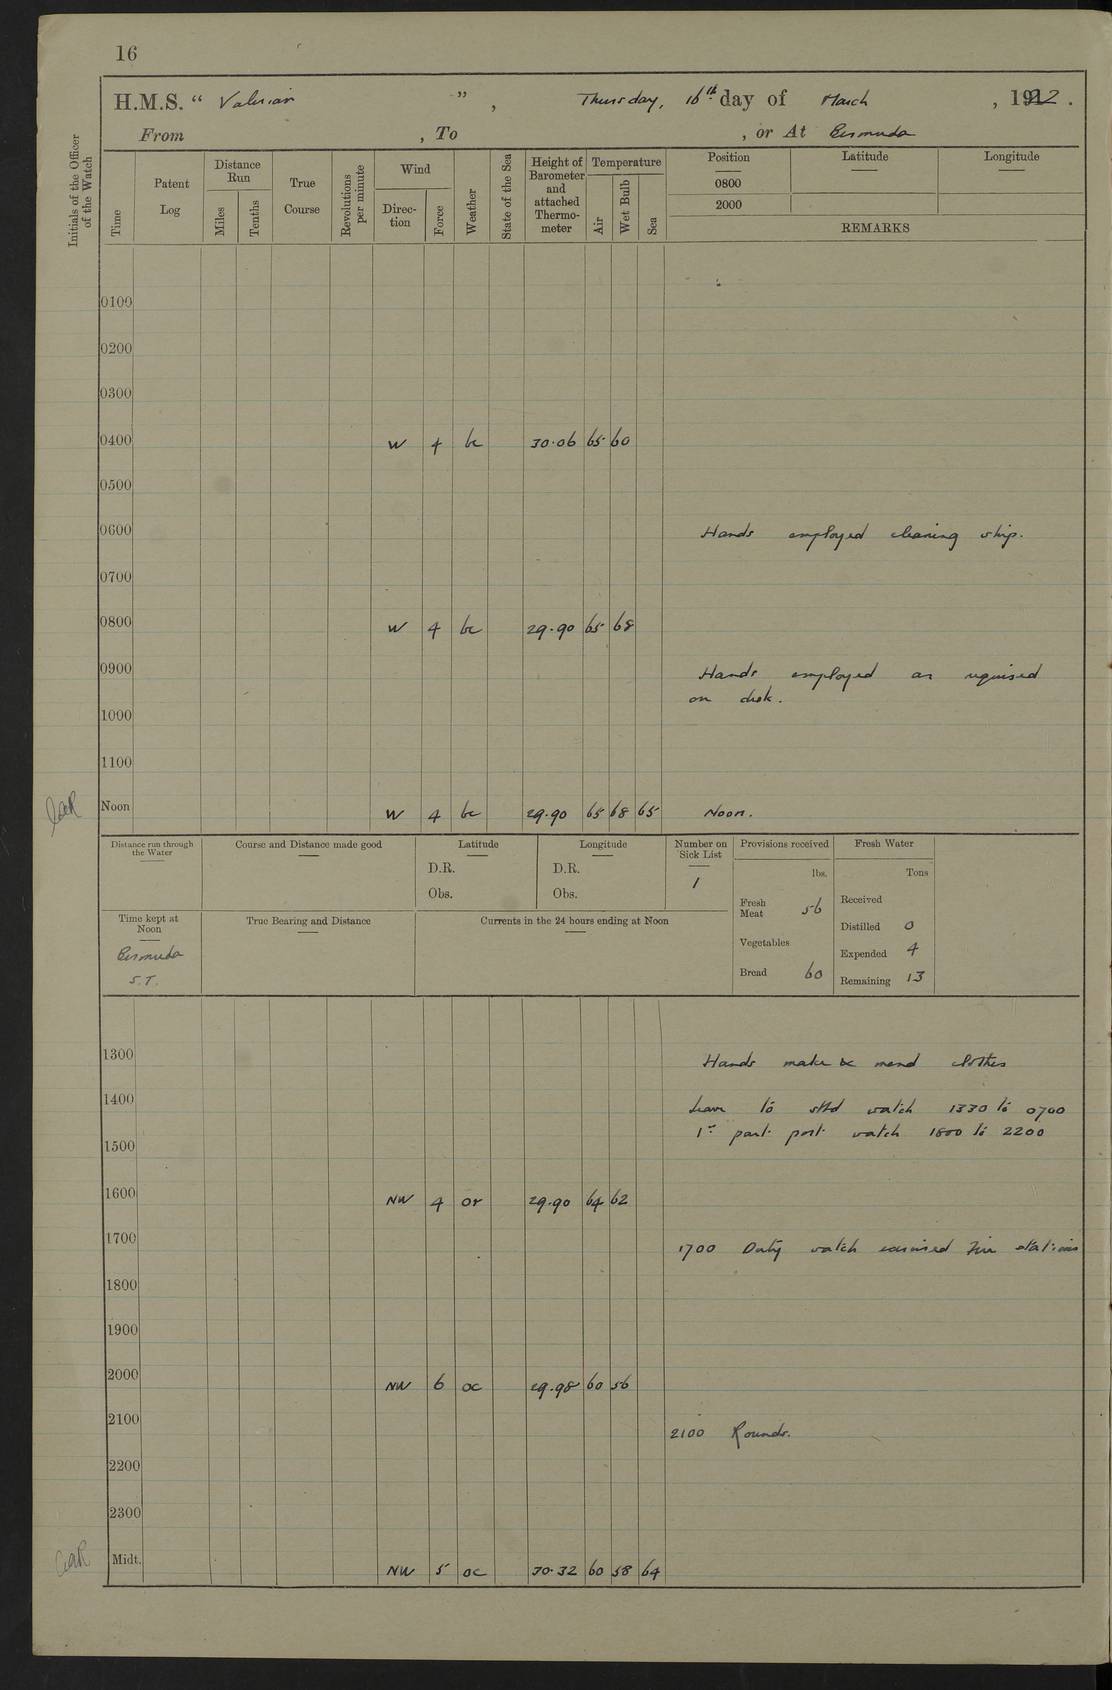 16
H.M.S. " Valerian " , Thursday, 16th day of March , 1922 .
From , To , or At Bermuda
Initials of the Officer of the Watch
Time
Patent Log
Distance Run
Miles
Tenths
True Course
Revolutions per minute
Wind
Direc- tion
Force
Weather
State of the Sea
Height of Barometer and attached Thermo- meter
Temperature
Air
Wet Bulb
Sea
Position Latitude Longitude
0800
2000
REMARKS
0100
0200
0300
0400 W 4 bc 30.06 65 60
0500
0600 Hands employed cleaning ship.
0700
0800 W 4 bc 29.90 65 68
0900 Hands employed as required
on deck.
1000
1100
Noon W 4 bc 29.90 65 68 65 Noon.
Distance run through the Water
Course and Distance made good
Latitude
D.R.
Obs.
Longitude
D.R.
Obs.
Number on Sick List
1
Provisions received
lbs.
Fresh Meat 56
Vegetables
Bread 60
Fresh Water
Tons
Received
Distilled 0
Expended 4
Remaining 13
Time kept at Noon
Bermuda
S.T.
True Bearing and Distance
Currents in the 24 hours ending at Noon
1300 Hands make & mend clothes
1400 Leave to stbd watch 1330 to 0700
1st part port watch 1800 to 2200
1500
1600 NW 4 or 29.90 64 62
1700 1700 Duty watch exercised Fire stations
1800
1900
2000 NW 6 oc 29.98 60 56
2100 2100 Rounds.
2200
2300
Midt. NW 5 oc 30.32 60 58 64